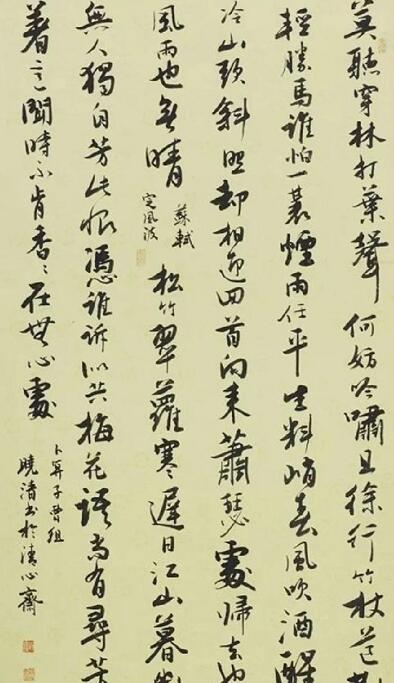 莫聽穿林打葉聲何妨吟嘯且徐行竹杖芒
輕勝馬誰怕一蓑煙雨任平生料峭春風吹酒醒
冷山頭斜照却相迎回首向来蕭瑟處歸去也
風雨也無晴
蘇軾
定風波
松竹翠蘿寒遲日江山暮
無人獨自芳此恨憑誰訴似共梅花語尚有尋芳
著意聞時不肯香々在無心處
卜算子曹組
曉清書於清心齋